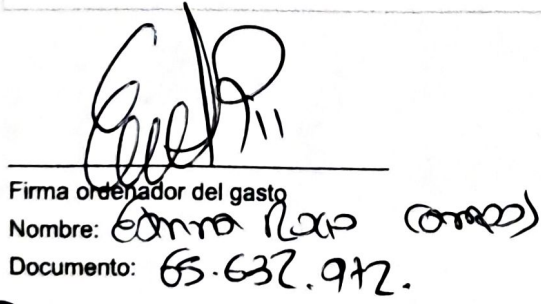 Firma ordenador del gasto
Nombre: Edna Rocio Campos
Documento: 65.632.972.